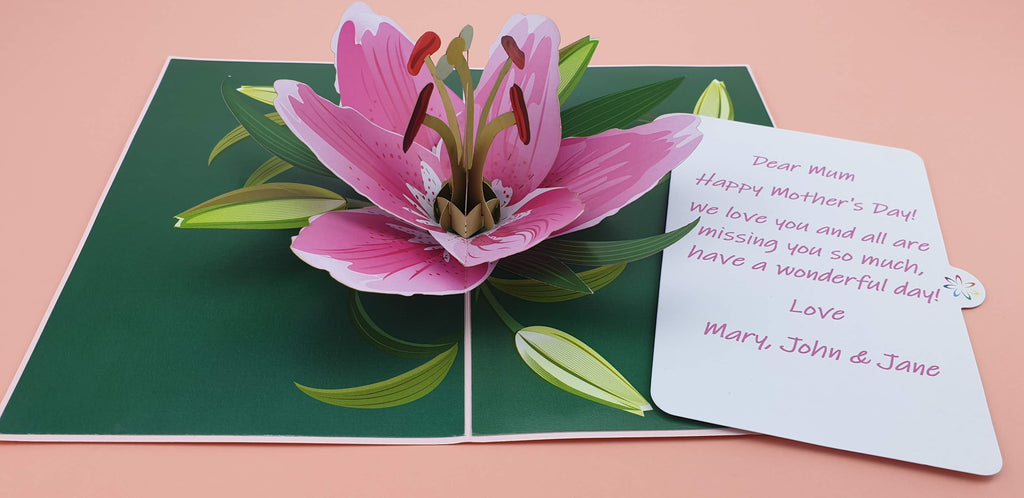 Dear Mum
Happy Mother's Day!
We love you and all are
missing you so much,
have a wonderful day!
Love
Mary, John & Jane